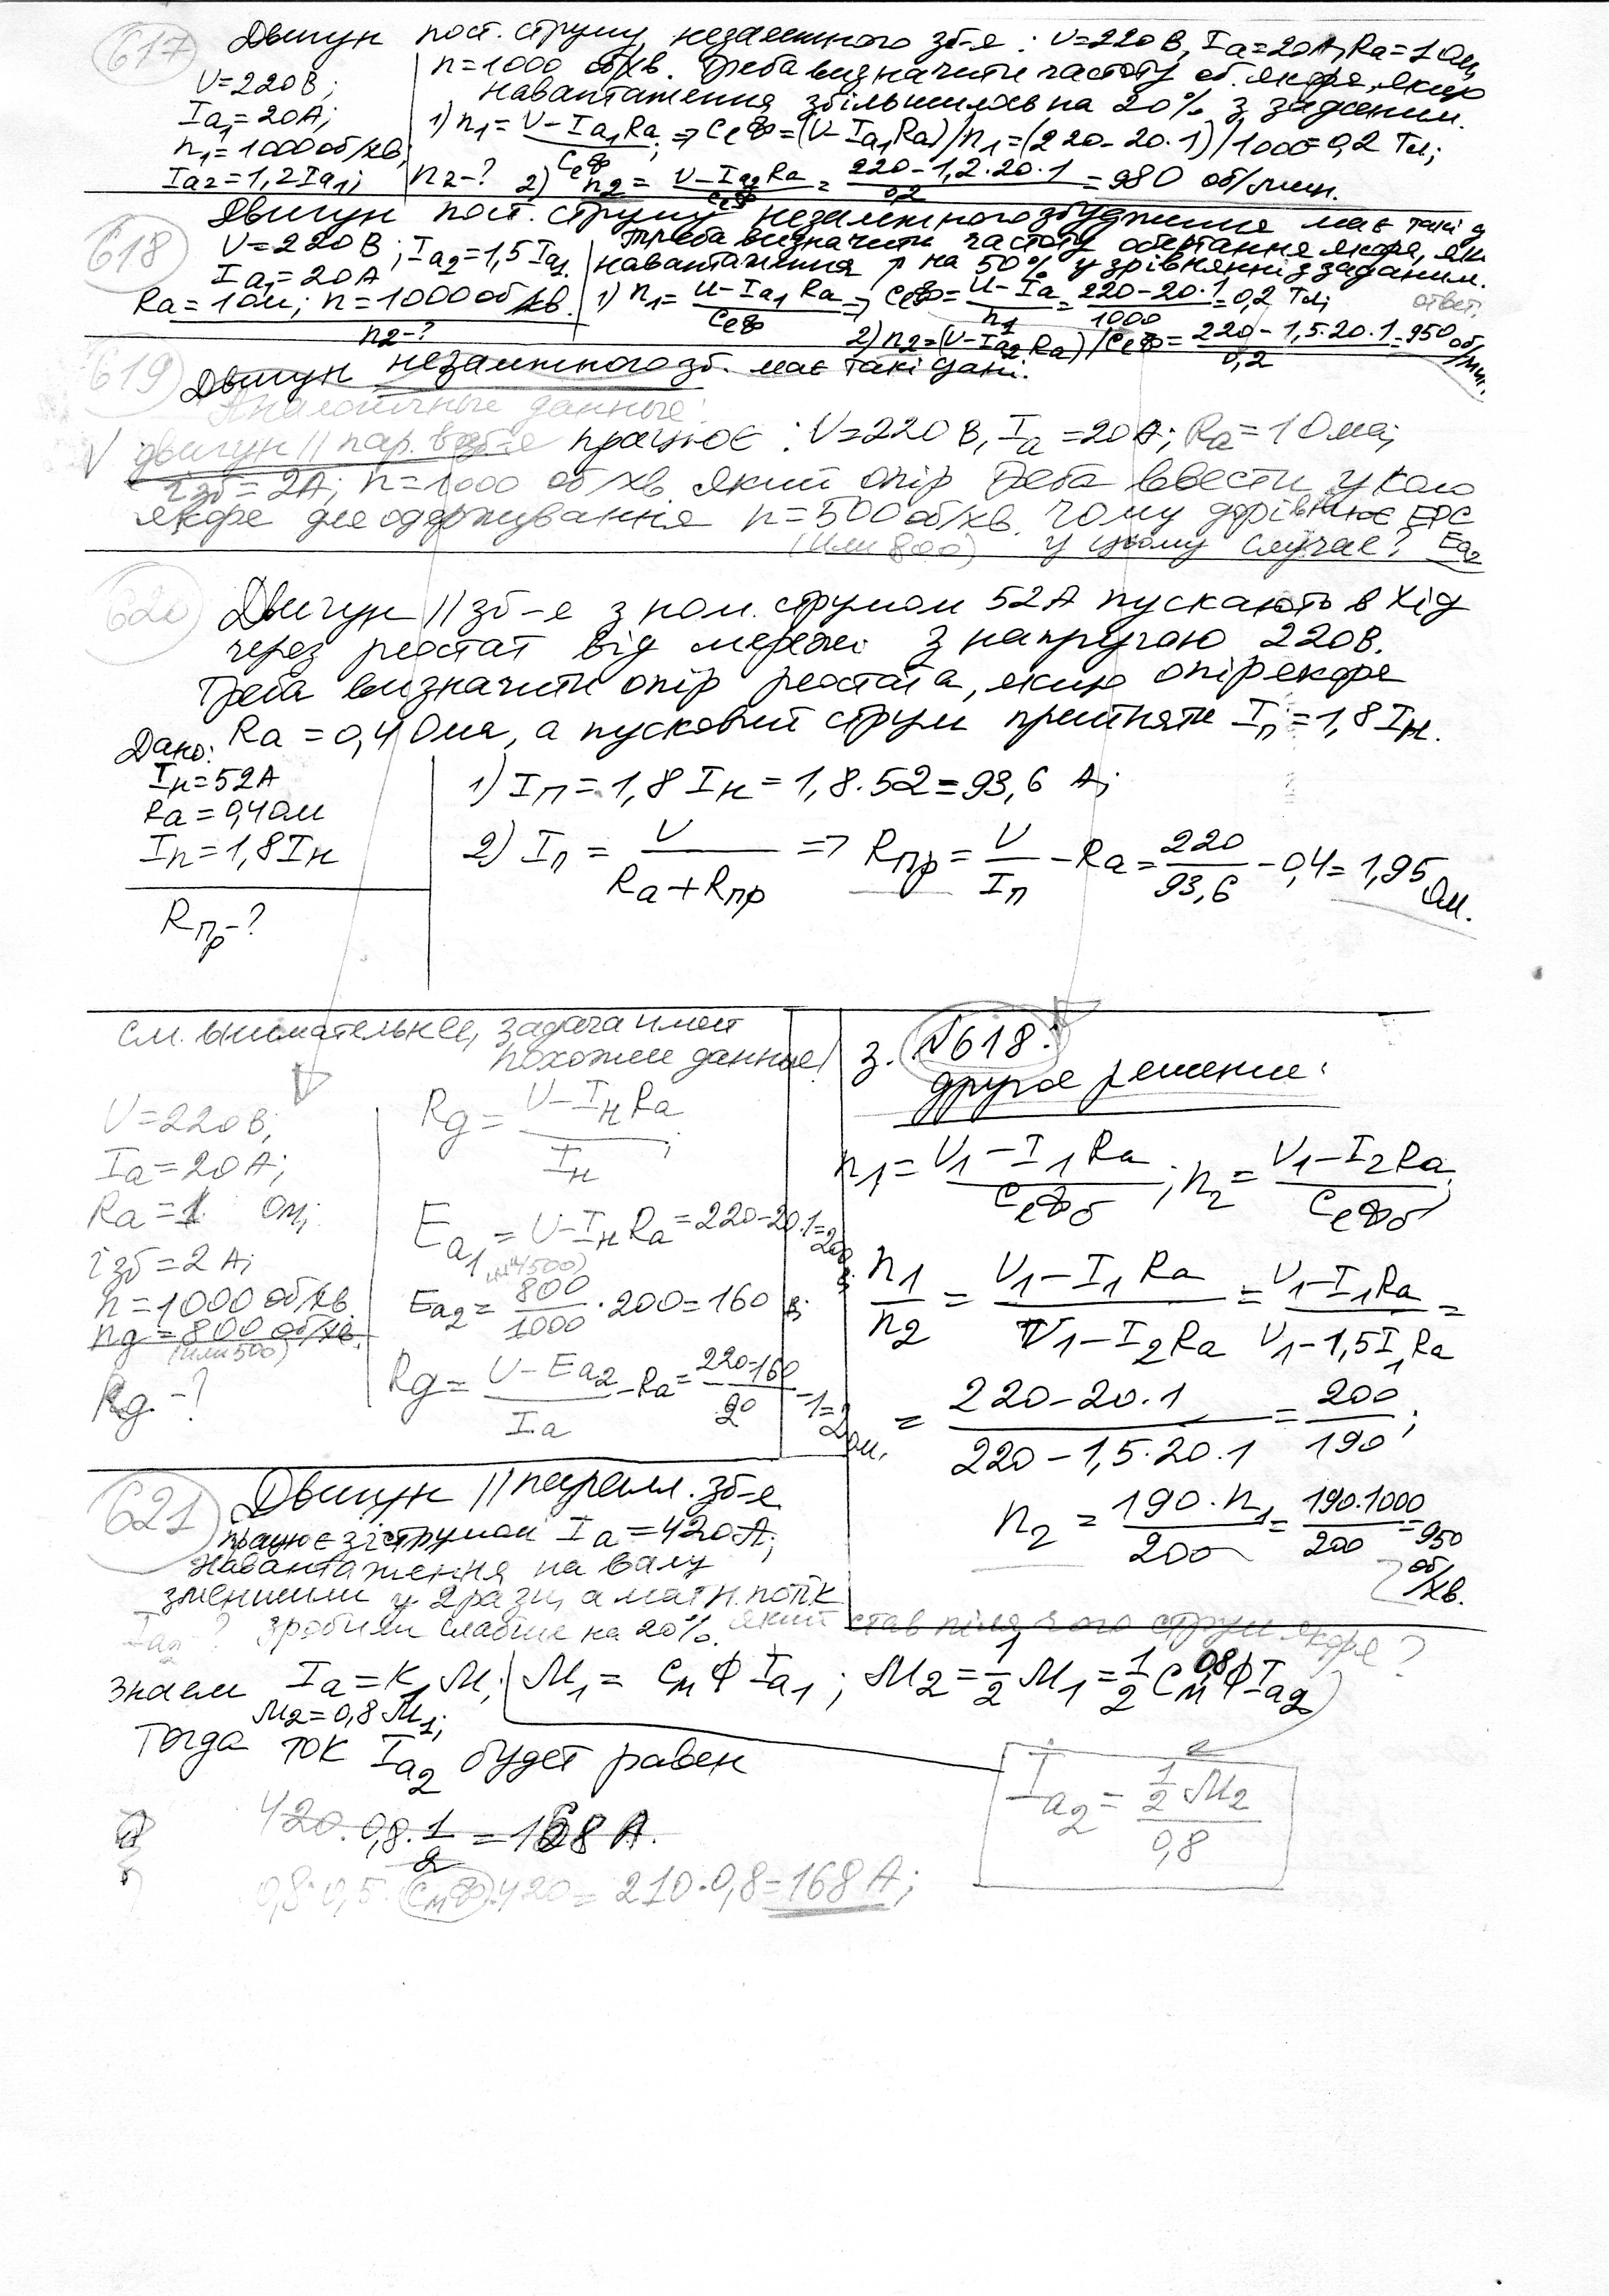 617
Двигун пост. струму незалежного зб-я: U=220 В, Ia=20А, Ra=1 Ом,
n=1000 об/хв. Треба визначити частоту об. якоря, якщо
навантаження збільшилась на 20% з заданим.
U=220В;
Ia1=20А;
n1=1000 об/хв;
Ia2=1,2Ia1;
n2-?
1) n1= (U-Ia1Ra)/CeФ; => CeФ=(U-Ia1Ra)/n1=(220-20·1)/1000=0,2 Тл;
2) n2= (U-Ia2Ra)/CeФ = (220-1,2·20·1)/0,2 =980 об/мин.
618
Двигун пост. струму незалежного збудження має такі д
U=220 В; Ia2=1,5Ia1
Ia1=20А
Ra=1 Ом; n=1000 об/хв.
n2-?
треба визначити частоту обертання якоря, як
навантаження ↑ на 50% у зрівнянні з заданим.
1) n1= (U-Ia1Ra)/CeФ => CeФ= (U-Ia)/n1 = (220-20·1)/1000 =0,2 Тл; ответ:
2) n2=(U-Ia2Ra)/CeФ= (220-1,5·20·1)/0,2 =950 об/мин.
619
Двигун незалежного зб. має такі дані:
Аналогичные данные:
V двигун // пар. зб-я працює: U=220 В, Ia=20А; Ra=1 Ома;
iзб=2А; n=1000 об/хв. який опір треба ввести у коло
якоря для одержування n=500 об/хв. Чому дорівнює ЕРС
(или 800) у цьому случае? Ea2
620
Двигун // зб-я з ном. струмом 52А пускають в хід
через реостат від мережі з напругою 220В.
Треба визначити опір реостата, якщо опір якоря
Ra=0,4 Ома, а пусковий струм прийняти Iп=1,8Iн.
Дано:
Iн=52А
Ra=0,4 Ом
Iп=1,8Iн
Rпр-?
1) Iп=1,8 Iн=1,8·52=93,6 А;
2) Iп= U/(Ra+Rпр) => Rпр= U/Iп -Ra= 220/93,6 -0,4= 1,95 Ом.
См. внимательнее, задача имеет
похожие данные!
U=220В;
Ia=20А;
Ra=1 Ом;
iзб=2 А;
n=1000 об/хв.
nд=800 об/хв.
(или 500)
Rд.-?
Rд= (U-IнRa)/Iн;
Ea1=U-IнRa=220-20·1=200
(или 500)
Ea2= 800/1000 ·200=160 В;
Rд= (U-Ea2)/Ia -Ra= (220-160)/20 -1=2 Ом.
з. №618:
другое решение:
n1= (U1-I1Ra)/CeФб; n2= (U1-I2Ra)/CeФб;
n1/n2 = (U1-I1Ra)/(U1-I2Ra) = (U1-I1Ra)/(U1-1,5I1Ra) =
= (220-20·1)/(220-1,5·20·1) = 200/190;
n2 = (190·n1)/200 = (190·1000)/200 =950 об/хв.
621
Двигун // паралл. зб-я
працює зі струмом Ia=420А;
Навантаження на валу
зменшили у 2 рази, а магн. потік
зробили слабше на 20%. який став після чого струм якоря?
Ia2-?
Знаем Ia=K1M; M1= CмФIa1; M2=1/2 M1=1/2 Cм0,8ФIa2
M2=0,8M1;
Тогда ток Ia2 будет равен
420·0,8·1/2=168 А.
Ia2= (1/2 M2)/0,8
0,8·0,5·(CмФ)·420=210·0,8=168 А;